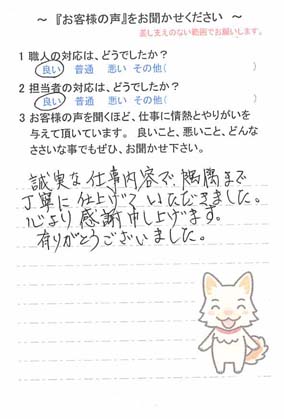 ～『お客様の声』をお聞かせください ～
差し支えのない範囲でお願いします。
1 職人の対応は、どうでしたか?
良い 普通 悪い その他( )
2 担当者の対応は、どうでしたか?
良い 普通 悪い その他( )
3 お客様の声を聞くほど、仕事に情熱とやりがいを
与えて頂いています。 良いこと、悪いこと、どんな
ささいな事でもぜひ、お聞かせ下さい。
誠実な仕事内容で、隅隅まで
丁寧に仕上げていただきました。
心より感謝申し上げます。
有りがとうございました。